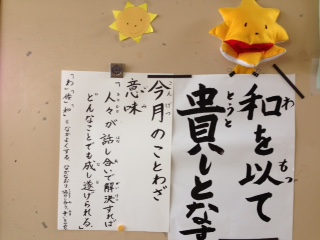 和を以て
貴しとなす
わ
もっ
とうと
今月のことわざ
こんげつ
意味
人々が話し合いで解決すれば
どんなことでも成し遂げられる。